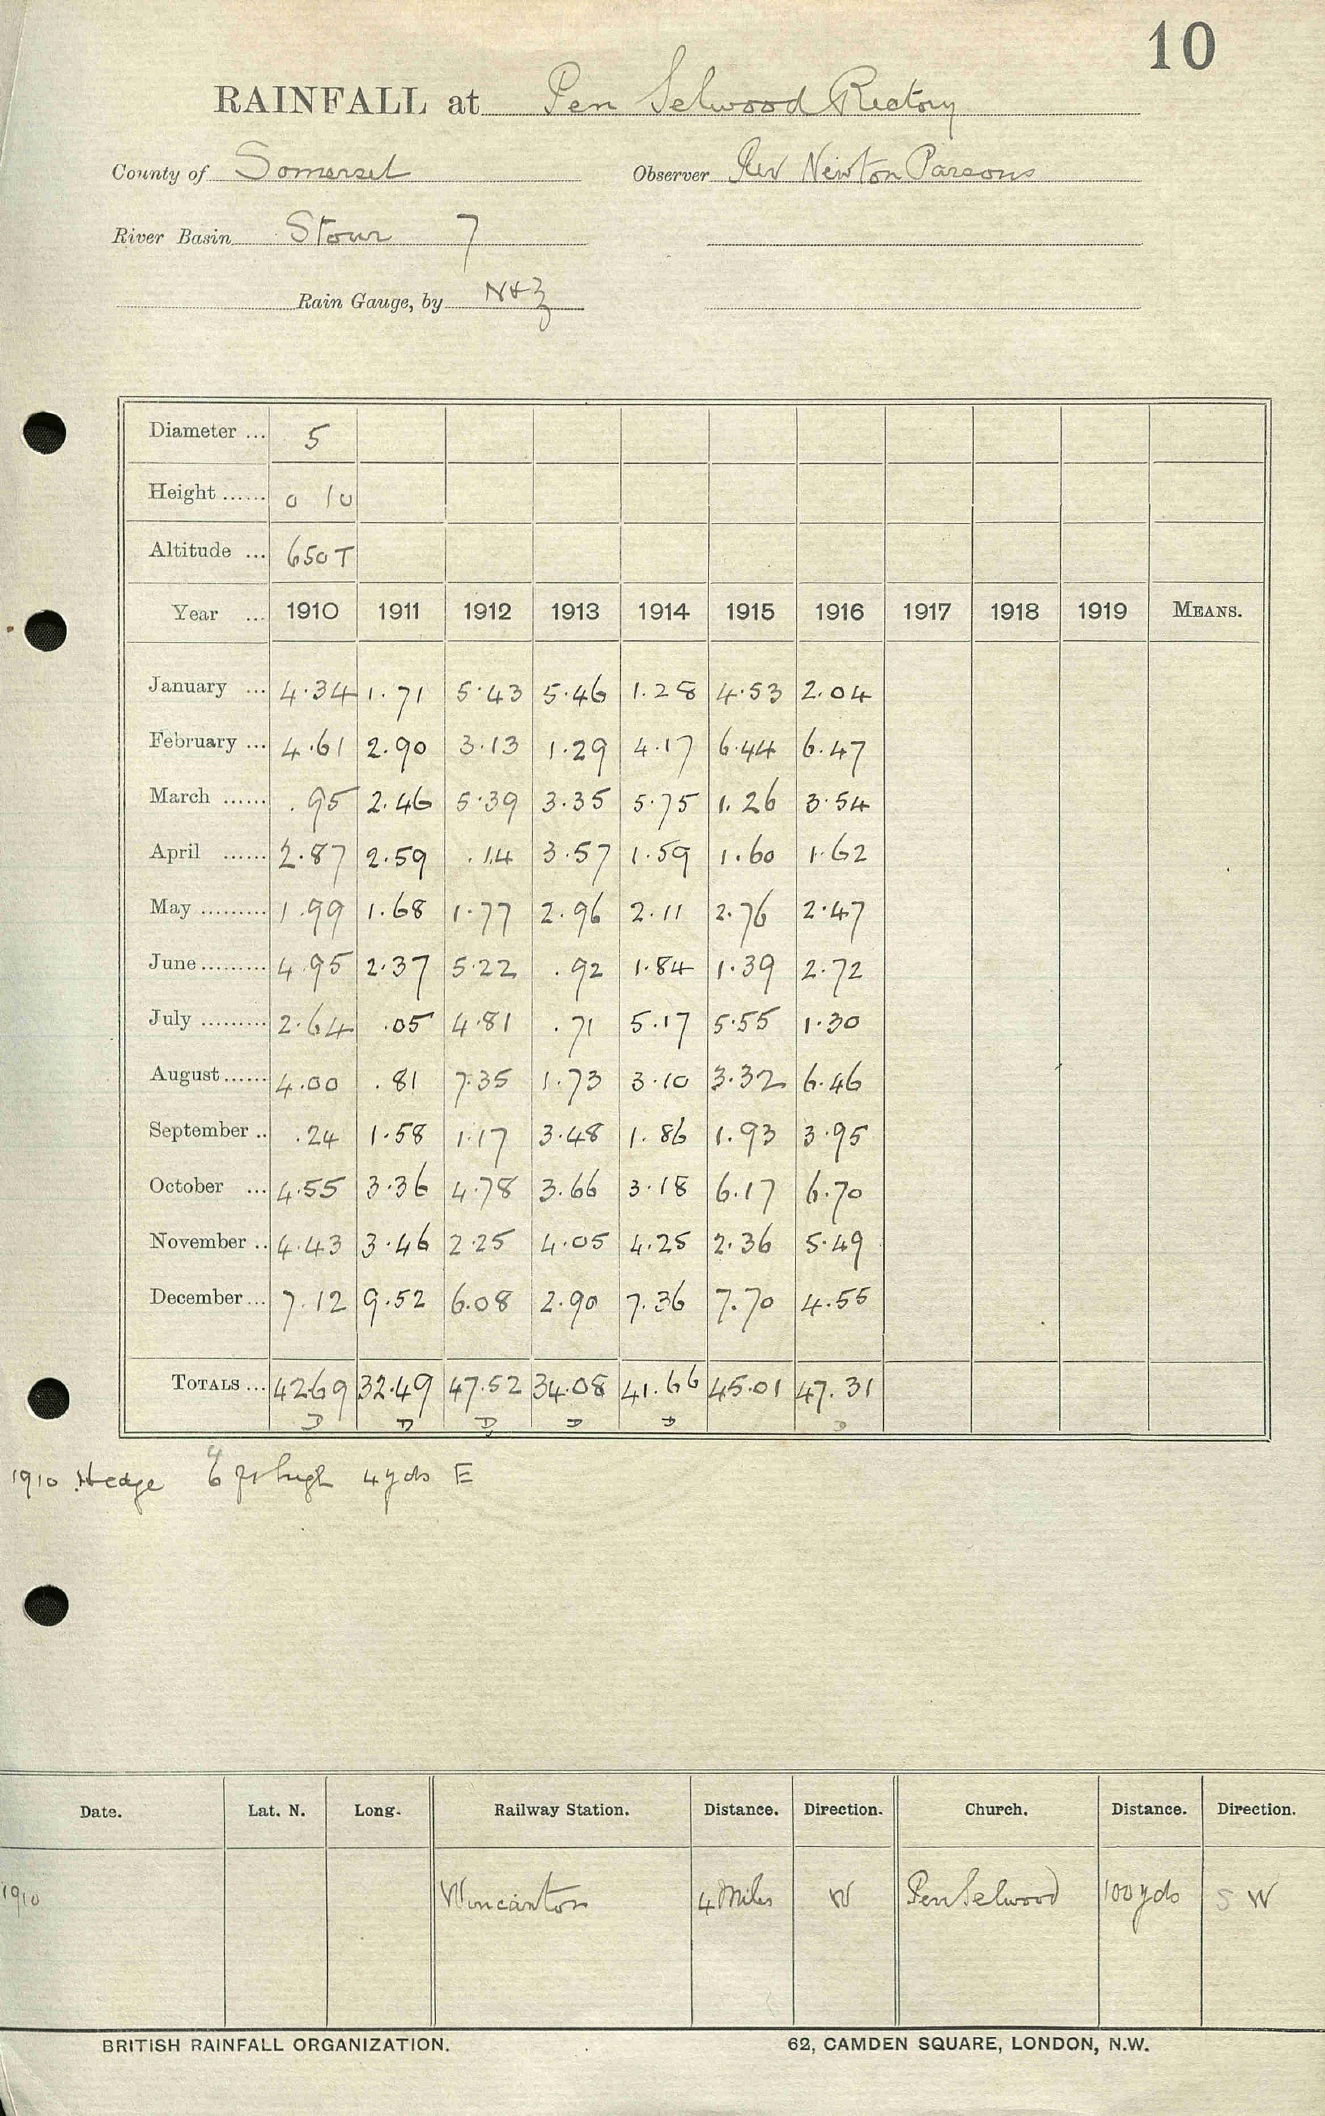 10
RAINFALL at Pen Selwood Rectory
County of Somerset Observer Rev Newton Parsons
River Basin Stour 7
Rain Gauge, by N&Z
Diameter ... 5
Height ...... 0 10
Altitude ... 650 T
Year ... 1910 1911 1912 1913 1914 1915 1916 1917 1918 1919 MEANS.
January ... 4.34 1.71 5.43 5.46 1.28 4.53 2.04
February ... 4.61 2.90 3.13 1.29 4.17 6.44 6.47
March ...... .95 2.46 5.39 3.35 5.75 1.26 3.54
April ...... 2.87 2.59 .14 3.57 1.59 1.60 1.62
May ......... 1.99 1.68 1.77 2.96 2.11 2.76 2.47
June ......... 4.95 2.37 5.22 .92 1.84 1.39 2.72
July ......... 2.64 .05 4.81 .71 5.17 5.55 1.30
August ...... 4.00 .81 7.35 1.73 3.10 3.32 6.46
September .. .24 1.58 1.17 3.48 1.86 1.93 3.95
October ... 4.55 3.36 4.78 3.66 3.18 6.17 6.70
November .. 4.43 3.46 2.25 4.05 4.25 2.36 5.49
December ... 7.12 9.52 6.08 2.90 7.36 7.70 4.55
TOTALS ... 42.69 32.49 47.52 34.08 41.66 45.01 47.31
D D D D D D
1910 Hedge 6 ft high 4 yds E
Date. Lat. N. Long. Railway Station. Distance. Direction. Church. Distance. Direction.
1910 Wincanton 4 Miles W Pen Selwood 100 yds S W
BRITISH RAINFALL ORGANIZATION. 62, CAMDEN SQUARE, LONDON, N.W.